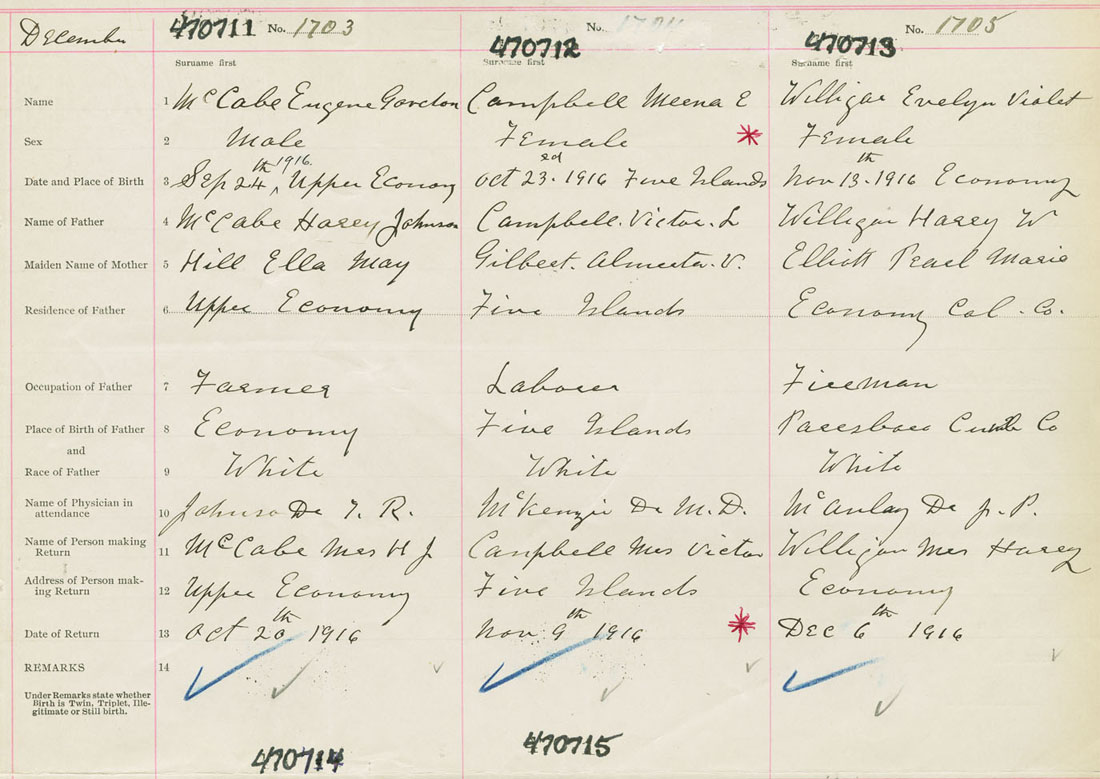 December
470711 No. 1703
470712 No. 1704
470713 No. 1705
Surname first Surname first Surname first
Name 1 McCabe Eugene Gordon Campbell Meena E Willigar Evelyn Violet
Sex 2 Male Female Female
Date and Place of Birth 3 Sep 24th 1916. Upper Economy Oct 23rd. 1916 Five Islands Nov 13th. 1916 Economy
Name of Father 4 McCabe Harry Johnson Campbell. Victor. L Willigar Harry W
Maiden Name of Mother 5 Hill Ella May Gilbert. Almeeta. V. Elliott Pearl Marie
Residence of Father 6 Upper Economy Five Islands Economy Col. Co.
Occupation of Father 7 Farmer Laborer Fireman
Place of Birth of Father 8 Economy Five Islands Parrsboro Cumb Co
and
Race of Father 9 White White White
Name of Physician in
attendance 10 Johnson Dr T. R. McKenzie Dr M.D. McAulay Dr J. P.
Name of Person making
Return 11 McCabe Mrs H J Campbell Mrs Victor Willigar Mrs Harry
Address of Person mak-
ing Return 12 Upper Economy Five Islands Economy
Date of Return 13 Oct 20th 1916 Nov 9th 1916 Dec 6th 1916
REMARKS 14
Under Remarks state whether
Birth is Twin, Triplet, Ille-
gitimate or Still birth.
470714 470715